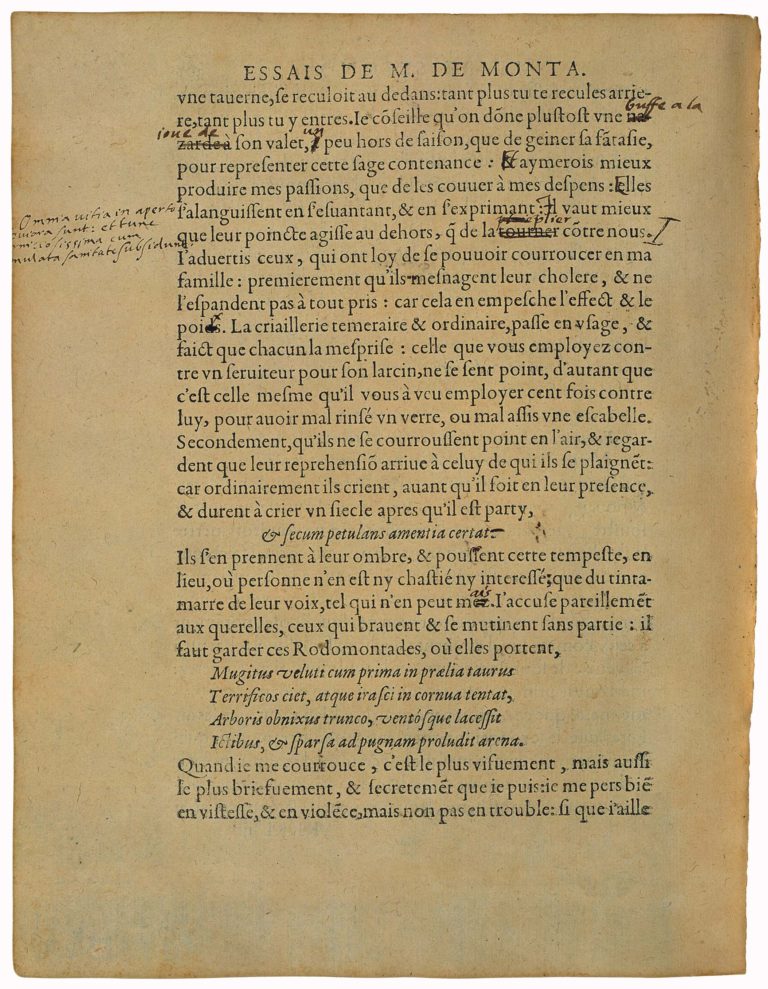 ESSAIS DE M. DE MONTA.
vne tauerne, se reculoit au dedans: tant plus tu te recules arrie-
re, tant plus tu y entres. Ie cõseille qu'on dõne plustost vne na
buffe a la
ioue de
zarde à son valet, un peu hors de saison, que de geiner sa fãtasie,
pour representer cette sage contenance : & aymerois mieux
produire mes passions, que de les couuer à mes despens : Elles
s'alanguissent en s'esuantant, & en s'exprimant : Il vaut mieux
que leur poincte agisse au dehors, q̃ de la tourner cõtre nous.
plier
Omnia vitia in aperto
leuiora sunt: et tunc
perniciosissima cum
simulata sanitate subsidunt
I'aduertis ceux, qui ont loy de se pouuoir courroucer en ma
famille : premierement qu'ils mesnagent leur cholere, & ne
l'espandent pas à tout pris : car cela en empesche l'effect & le
poids. La criaillerie temeraire & ordinaire, passe en vsage, &
faict que chacun la mesprise : celle que vous employez con-
tre vn seruiteur pour son larcin, ne se sent point, d'autant que
c'est celle mesme qu'il vous à veu employer cent fois contre
luy, pour auoir mal rinsé vn verre, ou mal assis vne escabelle.
Secondement, qu'ils ne se courroussent point en l'air, & regar-
dent que leur reprehensiõ arriue à celuy de qui ils se plaignẽt:
car ordinairement ils crient, auant qu'il soit en leur presence,
& durent à crier vn siecle apres qu'il est party,
& secum petulans amentia certat.
Ils s'en prennent à leur ombre, & poussent cette tempeste, en
lieu, où personne n'en est ny chastié ny interessé; que du tinta-
marre de leur voix, tel qui n'en peut mais. I'accuse pareillemẽt
aux querelles, ceux qui brauent & se mutinent sans partie : il
faut garder ces Rodomontades, où elles portent,
Mugitus veluti cum prima in prælia taurus
Terrificos ciet, atque irasci in cornua tentat,
Arboris obnixus trunco, ventósque lacessit
Ictibus, & sparsa ad pugnam proludit arena.
Quand ie me courrouce, c'est le plus visuement, mais aussi
le plus briefuement, & secretemẽt que ie puis: ie me pers biẽ
en vistesse, & en violẽce, mais non pas en trouble: si que i'aille